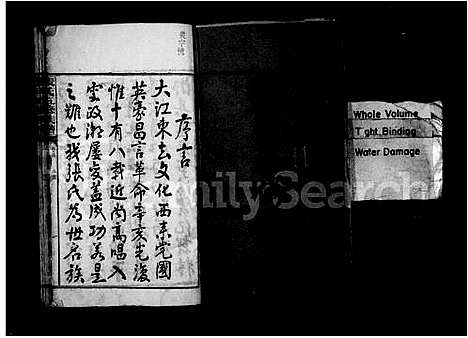 序言
大江東去文化西來党國
英豪昌言革命辛亥光復
惟十有八載近內高唱入
雲政潮屢變蓋成功若是
之難也我張氏為世名族
Whole Volume
Tight Binding
Water Damage
FamilySearch